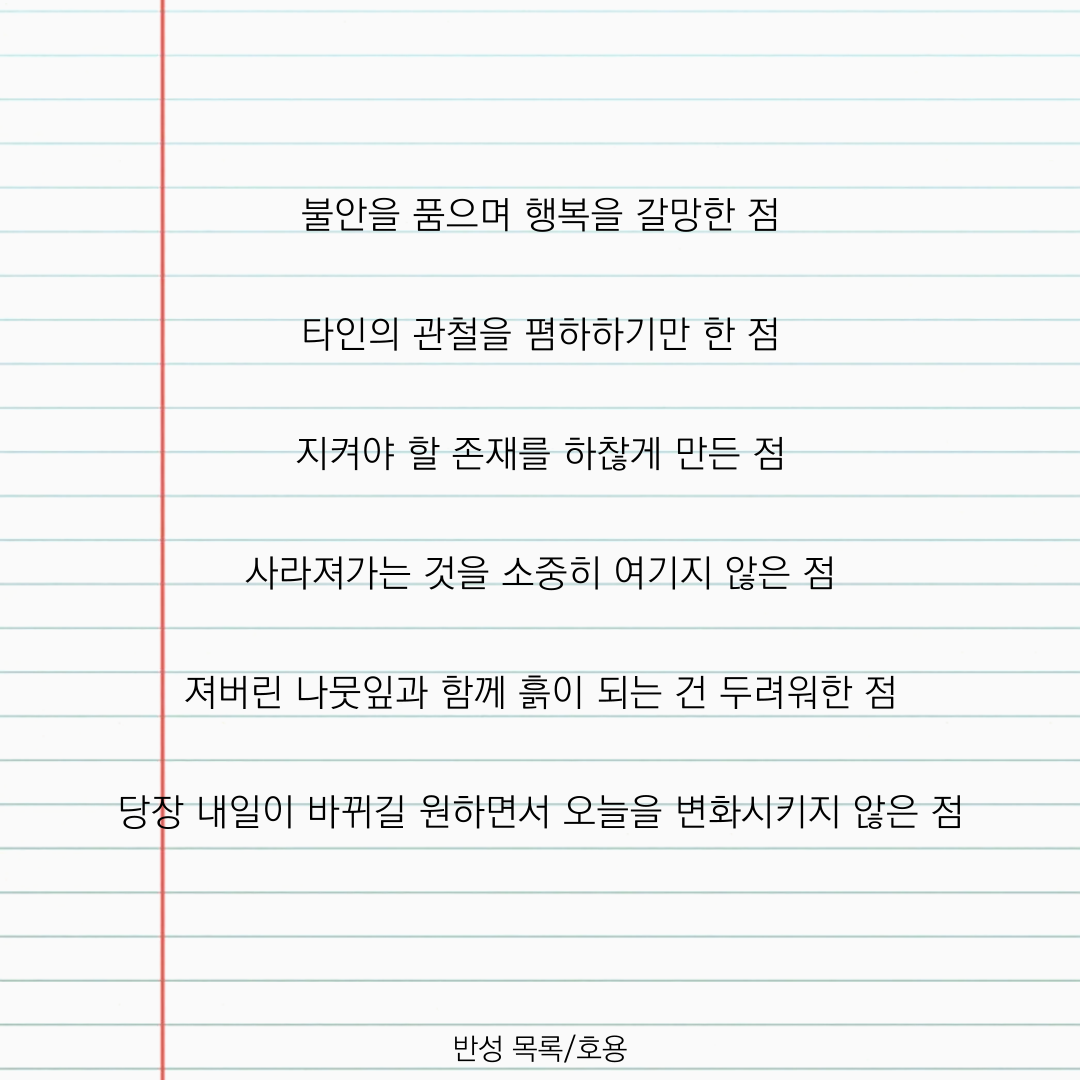 불안을 품으며 행복을 갈망한 점
타인의 관철을 폄하하기만 한 점
지켜야 할 존재를 하찮게 만든 점
사라져가는 것을 소중히 여기지 않은 점
져버린 나뭇잎과 함께 흙이 되는 건 두려워한 점
당장 내일이 바뀌길 원하면서 오늘을 변화시키지 않은 점
반성 목록/호용